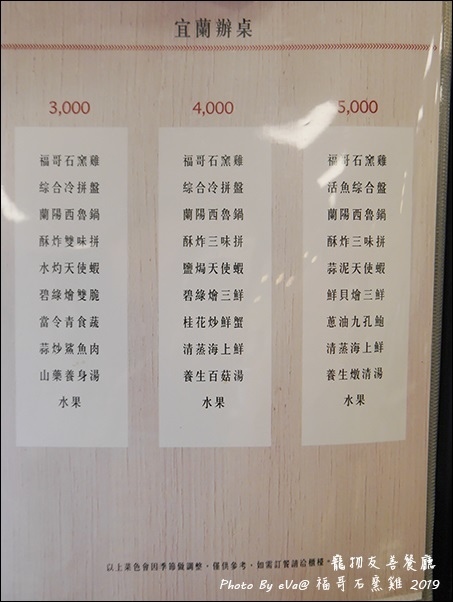 宜蘭辦桌
3,000
福哥石窯雞
綜合冷拼盤
蘭陽西魯鍋
酥炸雙味拼
水灼天使蝦
碧綠燴雙脆
當令青食蔬
蒜炒鯊魚肉
山藥養身湯
水果
4,000
福哥石窯雞
綜合冷拼盤
蘭陽西魯鍋
酥炸三味拼
鹽焗天使蝦
碧綠燴三鮮
桂花炒鮮蟹
清蒸海上鮮
養生百菇湯
水果
5,000
福哥石窯雞
活魚綜合盤
蘭陽西魯鍋
酥炸三味拼
蒜泥天使蝦
鮮貝燴三鮮
蔥油九孔鮑
清蒸海上鮮
養生燉清湯
水果
以上菜色會因季節做調整，僅供參考，如需訂餐請洽櫃檯
寵物友善餐廳
Photo By eVa@ 福哥石窯雞 2019